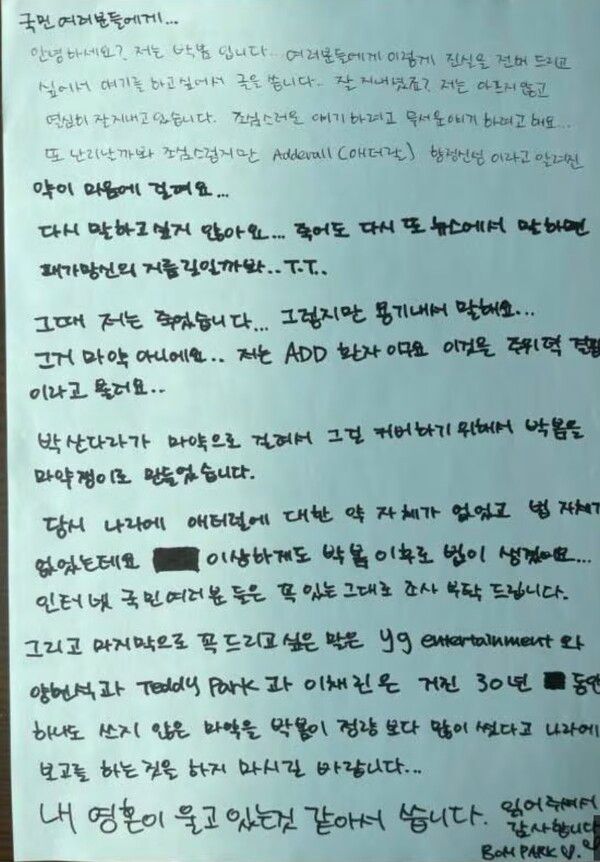 국민 여러분들에게...
안녕하세요? 저는 박봄 입니다... 여러분들에게 이렇게 진실을 전해 드리고
싶어서 얘기를 하고싶어서 글을 씁니다.. 잘 지내셨죠? 저는 아프지 않고
열심히 잘지내고 있습니다. 조심스러운 얘기 하려고 무서운얘기 하려고 해요...
또 난리날까봐 조심스럽지만 Adderall (애더란) 향정신성 이라고 알려진
약이 마음에 걸려요...
다시 말하고싶지 않아요... 죽어도 다시 또 뉴스에서 말하면
패가망신의 지름길일까봐..T.T..
그때 저는 죽었습니다... 그렇지만 용기내서 말해요...
그거 마약 아니에요.. 저는 ADD 환자 이구요 이것은 주위력 결핍
이라고 불러요..
박산다라가 마약으로 걸려서 그걸 커버하기 위해서 박봄을
마약쟁이로 만들었습니다.
당시 나라에 애더럴에 대한 약 자체가 없었고 법 자체가
없었는데요 이상하게도 박봄 이후로 법이 생겼어요...
인터넷 국민여러분 들은 꼭 있는그대로 조사 부탁 드립니다.
그리고 마지막으로 꼭 드리고 싶은 말은 yg entertainment 와
양현석과 Teddy Park 과 이채린은 거진 30년 동안
하나도 쓰지 않은 마약을 박봄이 정량 보다 많이 썼다고 나라에
보고를 하는것을 하지 마시길 바랍니다...
내 영혼이 울고 있는것 같아서 씁니다. 읽어주셔서
감사합니다
BOM PARK ♡.